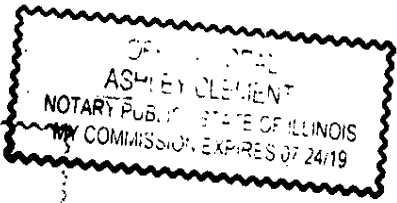 ASHLEY CLEMENT
NOTARY PUBLIC STATE OF ILLINOIS
MY COMMISSION EXPIRES 07 24/19